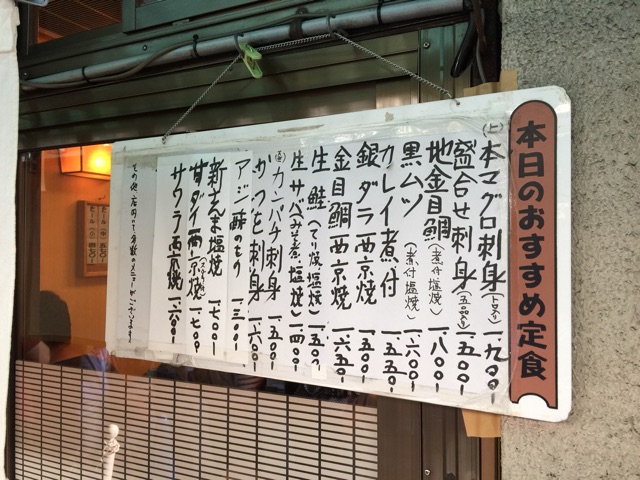 本日のおすすめ定食
(上)本マグロ刺身(トロ入り)一、九〇〇-
盛合せ刺身(五点盛り)一、五〇〇-
地金目鯛(煮付 塩焼)一、八〇〇-
黒ムツ(煮付 塩焼)一、六〇〇-
カレイ煮付 一、五五〇-
銀ダラ西京焼 一、五五〇-
金目鯛西京焼 一、六五〇-
生鮭(てり焼 塩焼)一、五〇〇-
生サバ(みそ煮 塩焼)一、四〇〇-
カンパチ刺身 一、五〇〇-
かつを刺身 一、六〇〇-
アジ酢のもの 一、三〇〇-
新さんま塩焼 一、七〇〇-
甘ダイ西京焼 一、七〇〇
サワラ西京焼 一、六〇〇-
その他店内にて多数のメニューがございます